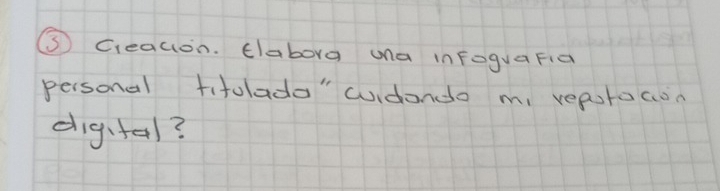 ③ Creación. Elabora una infografia
personal titulada "Cuidando mi reputación
digital?